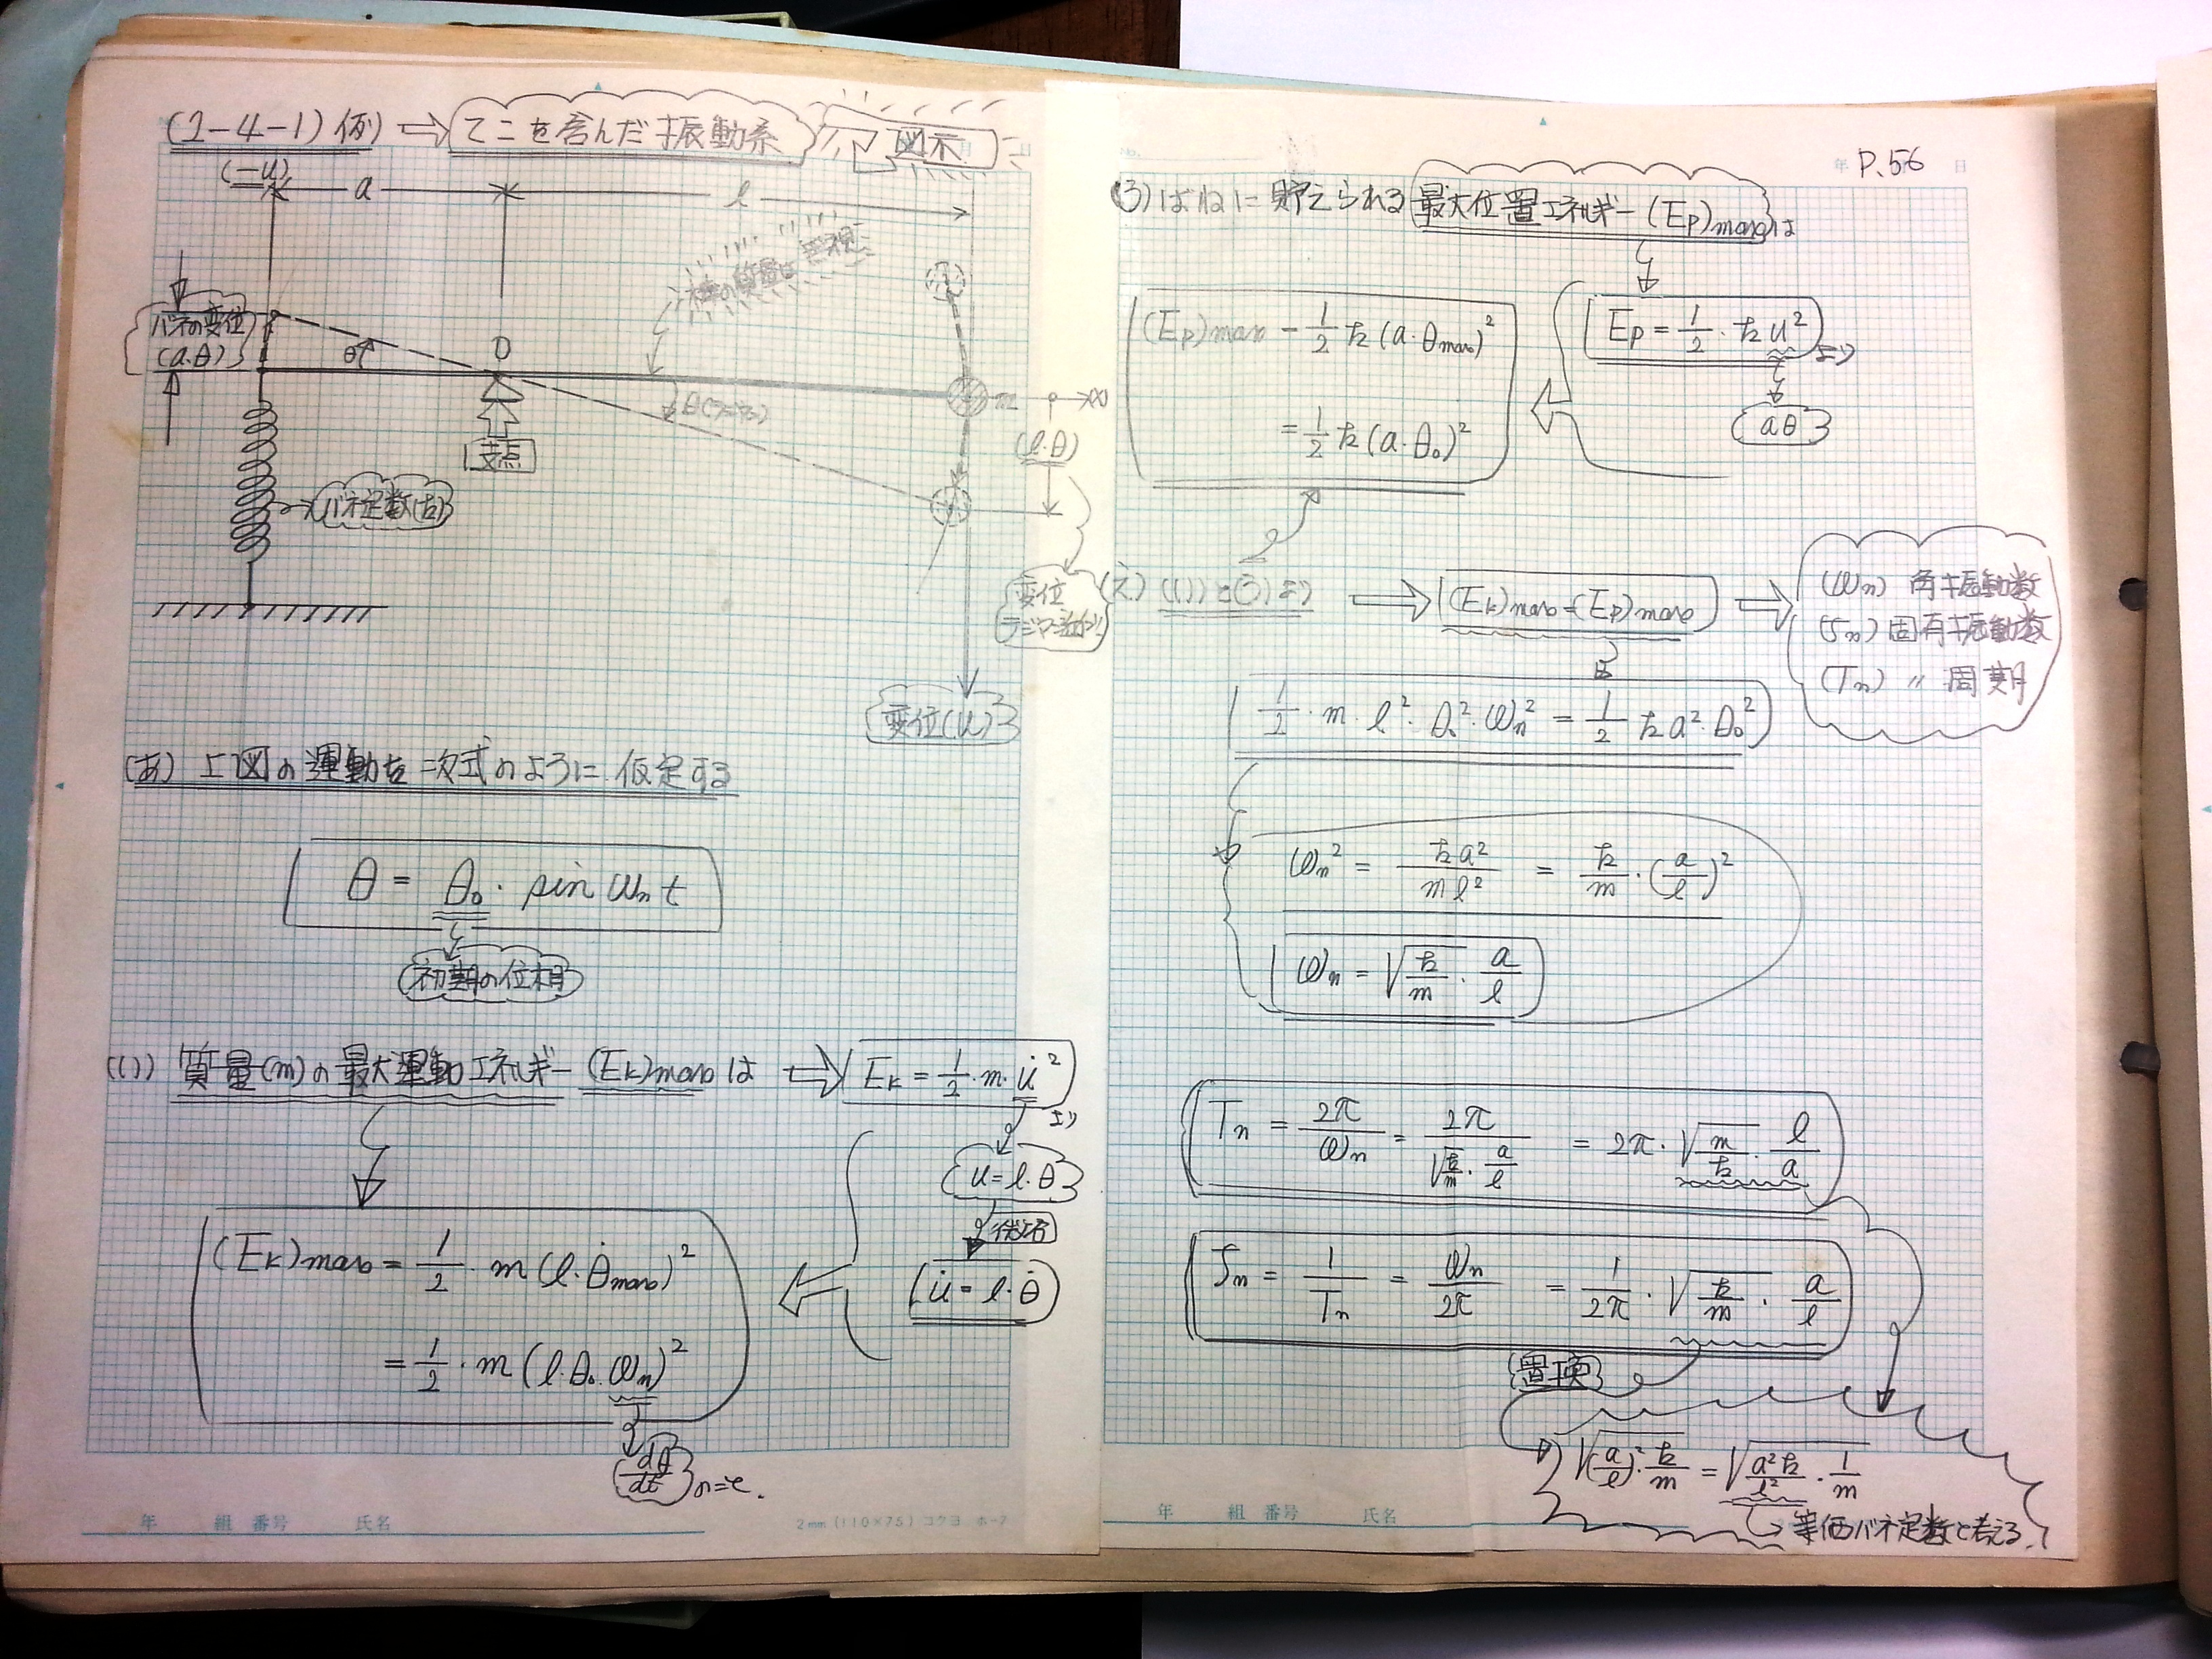 (1-4-1) 例) ⇒ てこを含んだ振動系 図示
(-u)
a
l
棒の質量は無視
バネの変位
(a・θ)
θ
O
θ(ラジアン)
m
x
(l・θ)
支点
バネ定数(k)
変位
変位(u)
(あ) 上図の運動を次式のように仮定する
θ = θ₀・sin ωn t
初期の位相
(い) 質量(m)の最大運動エネルギー (Ek)max は ⇒ Ek = 1/2・m・u̇² より
u = l・θ
微分
u̇ = l・θ̇
(Ek)max = 1/2・m(l・θ̇max)²
= 1/2・m(l・θ₀・ωn)²
dθ/dt のこと.
年 組 番号 氏名
2mm (110×75) コクヨ ホ-7
No.
年 P.56 日
(う) ばねに貯えられる最大位置エネルギー (Ep)max は
Ep = 1/2・k u² より
aθ
(Ep)max = 1/2 k(a・θmax)²
= 1/2 k(a・θ₀)²
(え) (い)と(う)より ⇒ (Ek)max = (Ep)max ⇒
(ωn) 角振動数
(fn) 固有振動数
(Tn) 〃 周期
1/2・m・l²・θ₀²・ωn² = 1/2 k a²・θ₀²
ωn² = ka²/ml² = k/m・(a/l)²
ωn = √(k/m)・a/l
Tn = 2π/ωn = 2π/(√(k/m)・a/l) = 2π・√(m/k)・l/a
fn = 1/Tn = ωn/2π = 1/2π・√(k/m)・a/l
置換
√((a/l)²・k/m) = √(a²k/l²・1/m)
等価バネ定数と考える.
年 組 番号 氏名